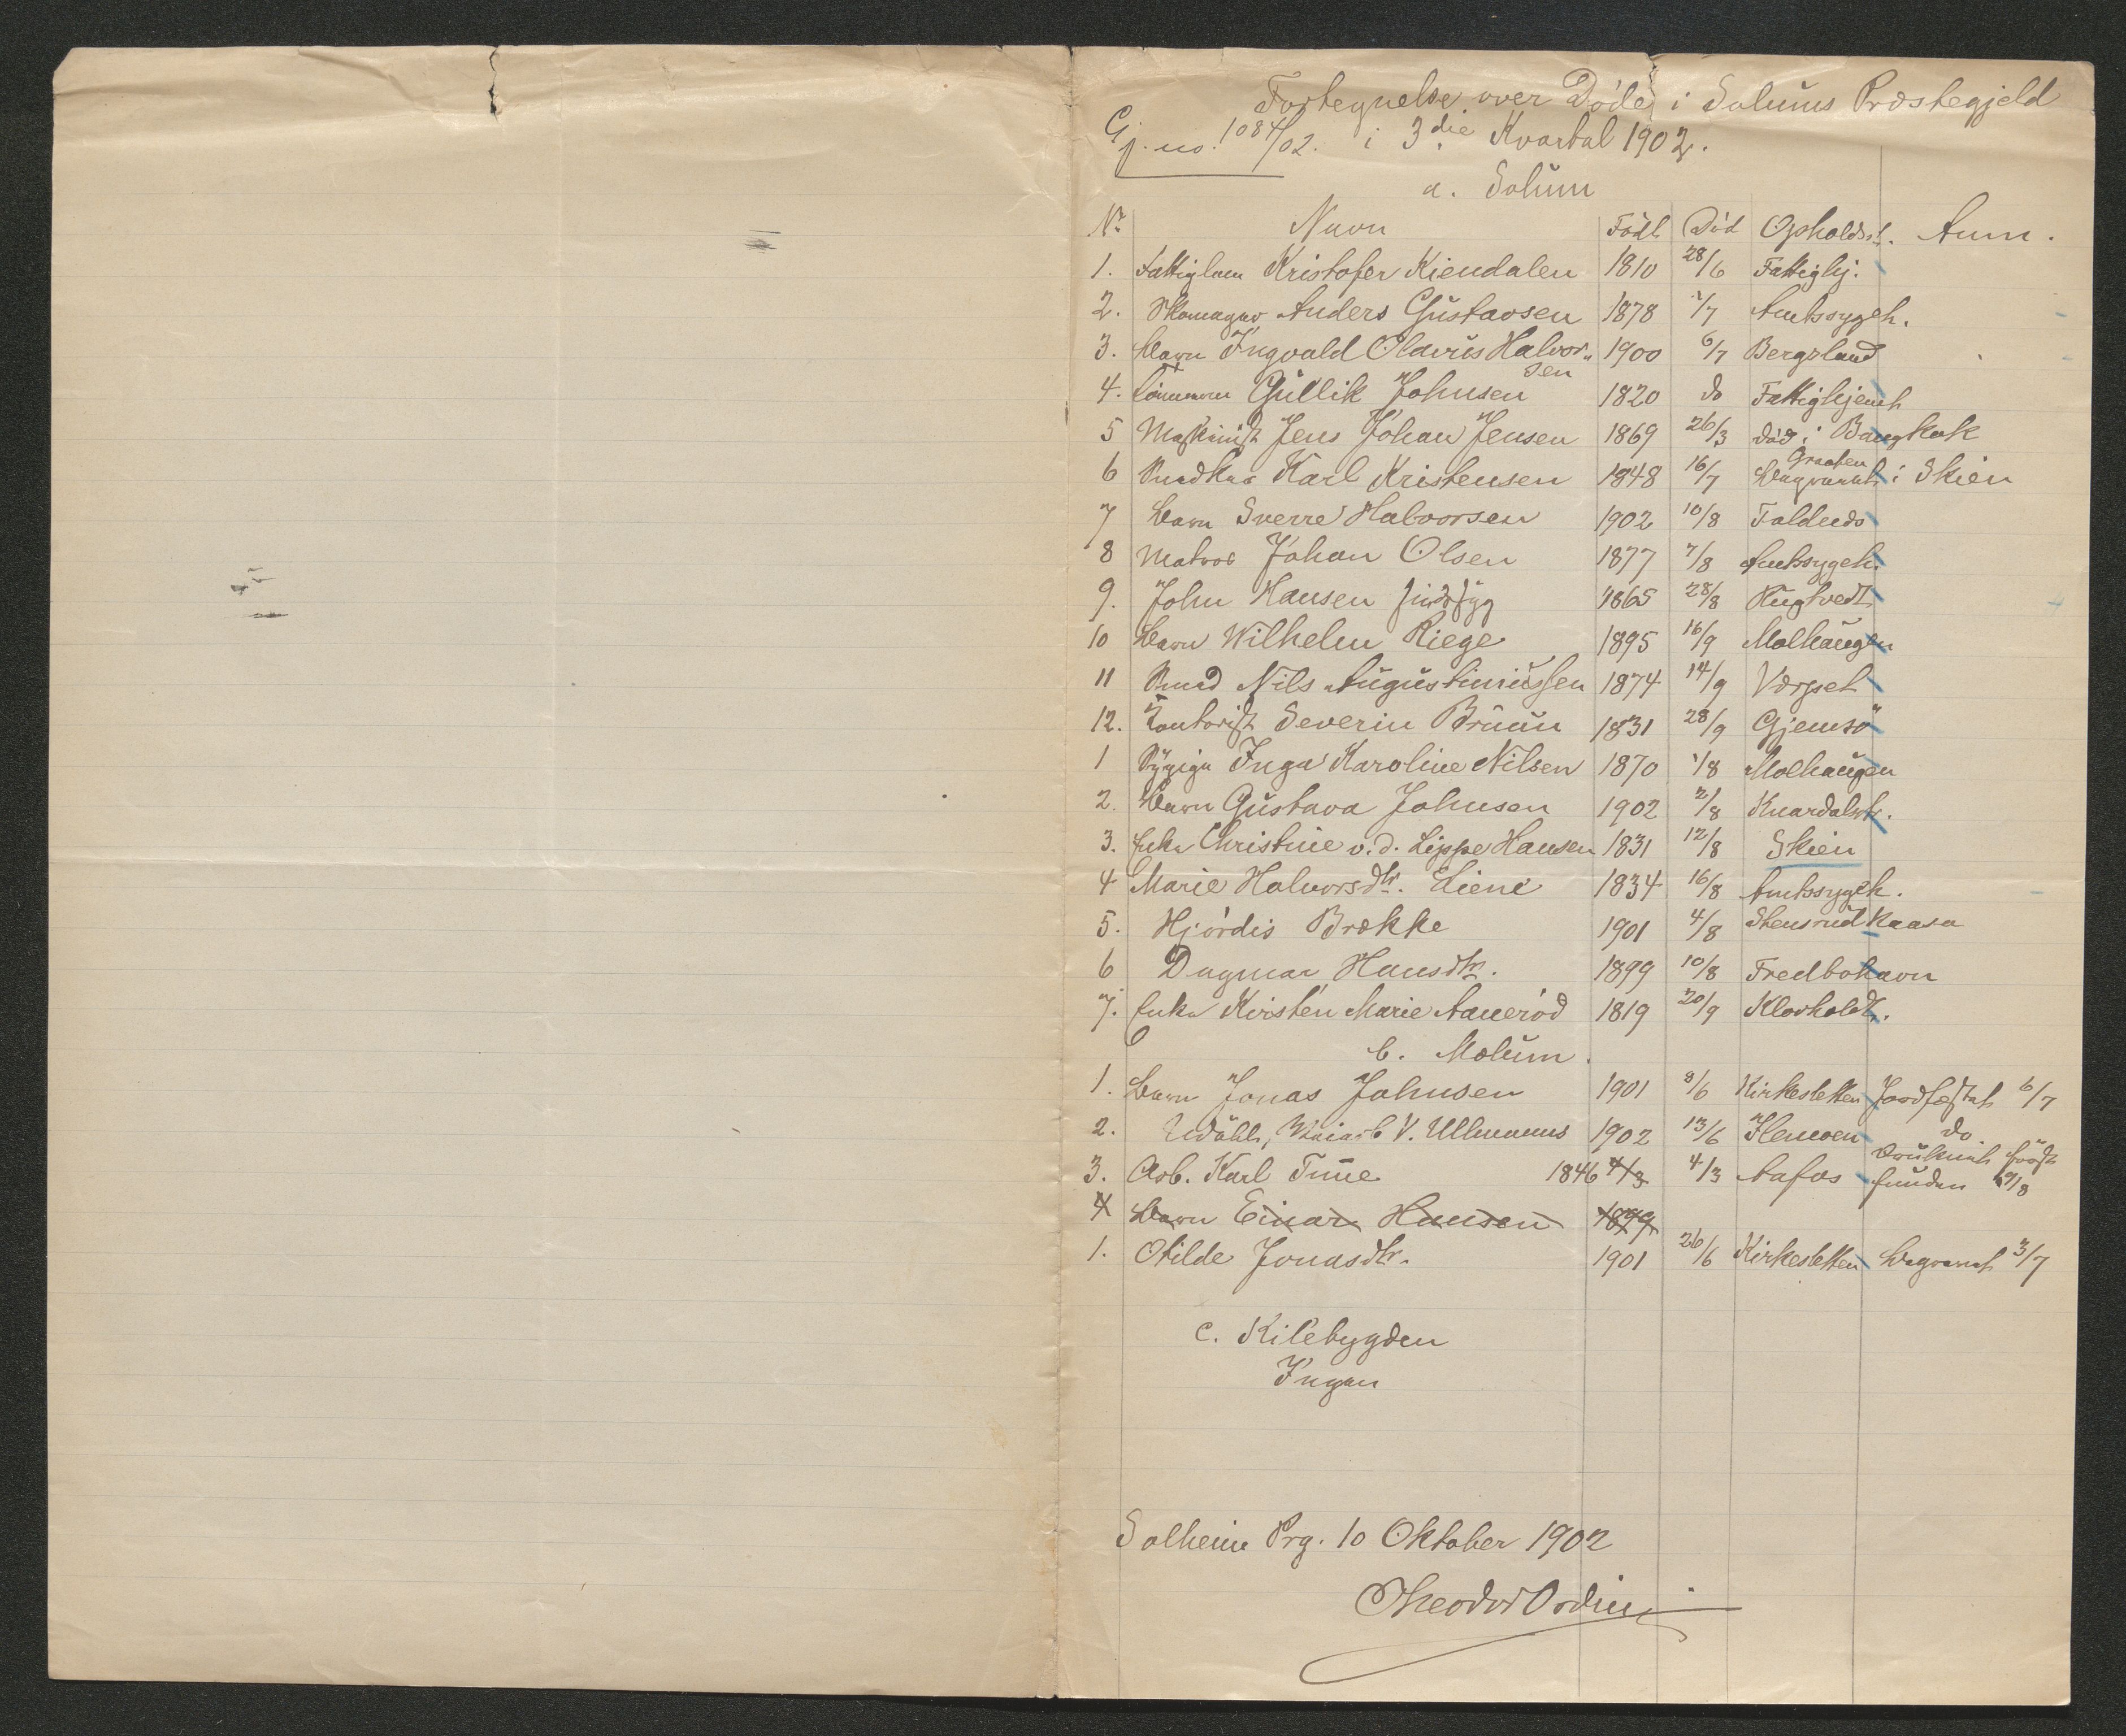 Fortegnelse over Døde i Solums Præstegjeld
Gj. no. 1084/02. i 3die Kvartal 1902.
a. Solum
Nr Navn Født Død Opholdsst. Anm.
1. Fattiglem Kristofer Kiendalen 1810 28/6 Fattighj.
2. Skomager Anders Gustavsen 1878 1/7 Amtssygeh.
3. Barn Ingvald Olavus Halvor„ 1900 6/7 Bergsland
sen
4. Gullik Johnsen 1820 do Fattighjemt
5 Maskinist Jens Johan Jensen 1869 26/3 død i Bangkok
6 Karl Kristensen 1848 16/7 Graaten i Skien
7 Barn Sverre Halvorsen 1902 10/8 Foldnds
8 Matros Johan Olsen 1877 7/8 Amtssygeh.
9. John Hansen sindssyg 1865 28/8 Rugtvedt
10 Barn Wilhelm Riege 1895 16/9 Molhaugen
11 Nils Augustiniussen 1874 14/9 Værpet
12. Kontorist Severin Bruun 1831 28/9 Gjemsø
1 Inga Karoline Nilsen 1870 1/8 Molhaugen
2. Barn Gustava Johnsen 1902 2/8 Knardalstr.
3. Enke Christine v. d. Lippe Hansen 1831 12/8 Skien
4 Marie Halvorsdtr. Liene 1834 16/8 Amtssygeh.
5. Hjørdis Brække 1901 4/8 Stensrudkaasa
6 Dagmar Hansdtr. 1899 10/8 Fredbohavn
7. Enke Kirsten Marie Aanerød 1819 20/9 Klovholdt.
b. Mælum.
1. Barn Jonas Johnsen 1901 8/6 Kirkesletten Jordfæstet 6/7
2. Udøbt, V. Ullmanns 1902 13/6 Hemoen do
3. Arb. Karl Tune 1846 4/3 4/3 Aafos druknet først
funden 19/8
4 Barn Einar Hansen 1899
1. Otilde Jonasdtr. 1901 26/6 Kirkesletten begravet 3/7
c. Kilebygden
Ingen
Solheim Prg. 10 Oktober 1902
Theodor Ording